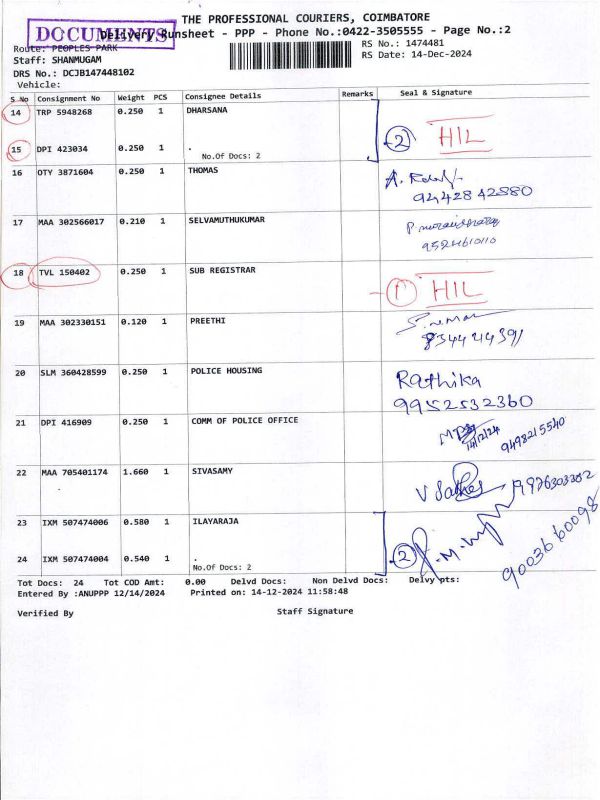 THE PROFESSIONAL COURIERS, COIMBATORE
DOCUMENTS
Delivery Runsheet - PPP - Phone No.:0422-3505555 - Page No.:2
Route: PEOPLES PARK
RS No.: 1474481
Staff: SHANMUGAM
RS Date: 14-Dec-2024
DRS No.: DCJB147448102
Vehicle:
S No Consignment No Weight PCS Consignee Details Remarks Seal & Signature
14 TRP 5948268 0.250 1 DHARSANA
2 HIL
15 DPI 423034 0.250 1 .
No.Of Docs: 2
16 OTY 3871604 0.250 1 THOMAS
9442842880
17 MAA 302566017 0.210 1 SELVAMUTHUKUMAR
18 TVL 150402 0.250 1 SUB REGISTRAR
1 HIL
19 MAA 302330151 0.120 1 PREETHI
20 SLM 360428599 0.250 1 POLICE HOUSING
Rathika
9952532360
21 DPI 416909 0.250 1 COMM OF POLICE OFFICE
14/12/24 9498215540
22 MAA 705401174 1.660 1 SIVASAMY
9976303382
23 IXM 507474006 0.580 1 ILAYARAJA
2 9003660098
24 IXM 507474004 0.540 1 .
No.Of Docs: 2
Tot Docs: 24 Tot COD Amt: 0.00 Delvd Docs: Non Delvd Docs: Delvy pts:
Entered By :ANUPPP 12/14/2024 Printed on: 14-12-2024 11:58:48
Verified By Staff Signature